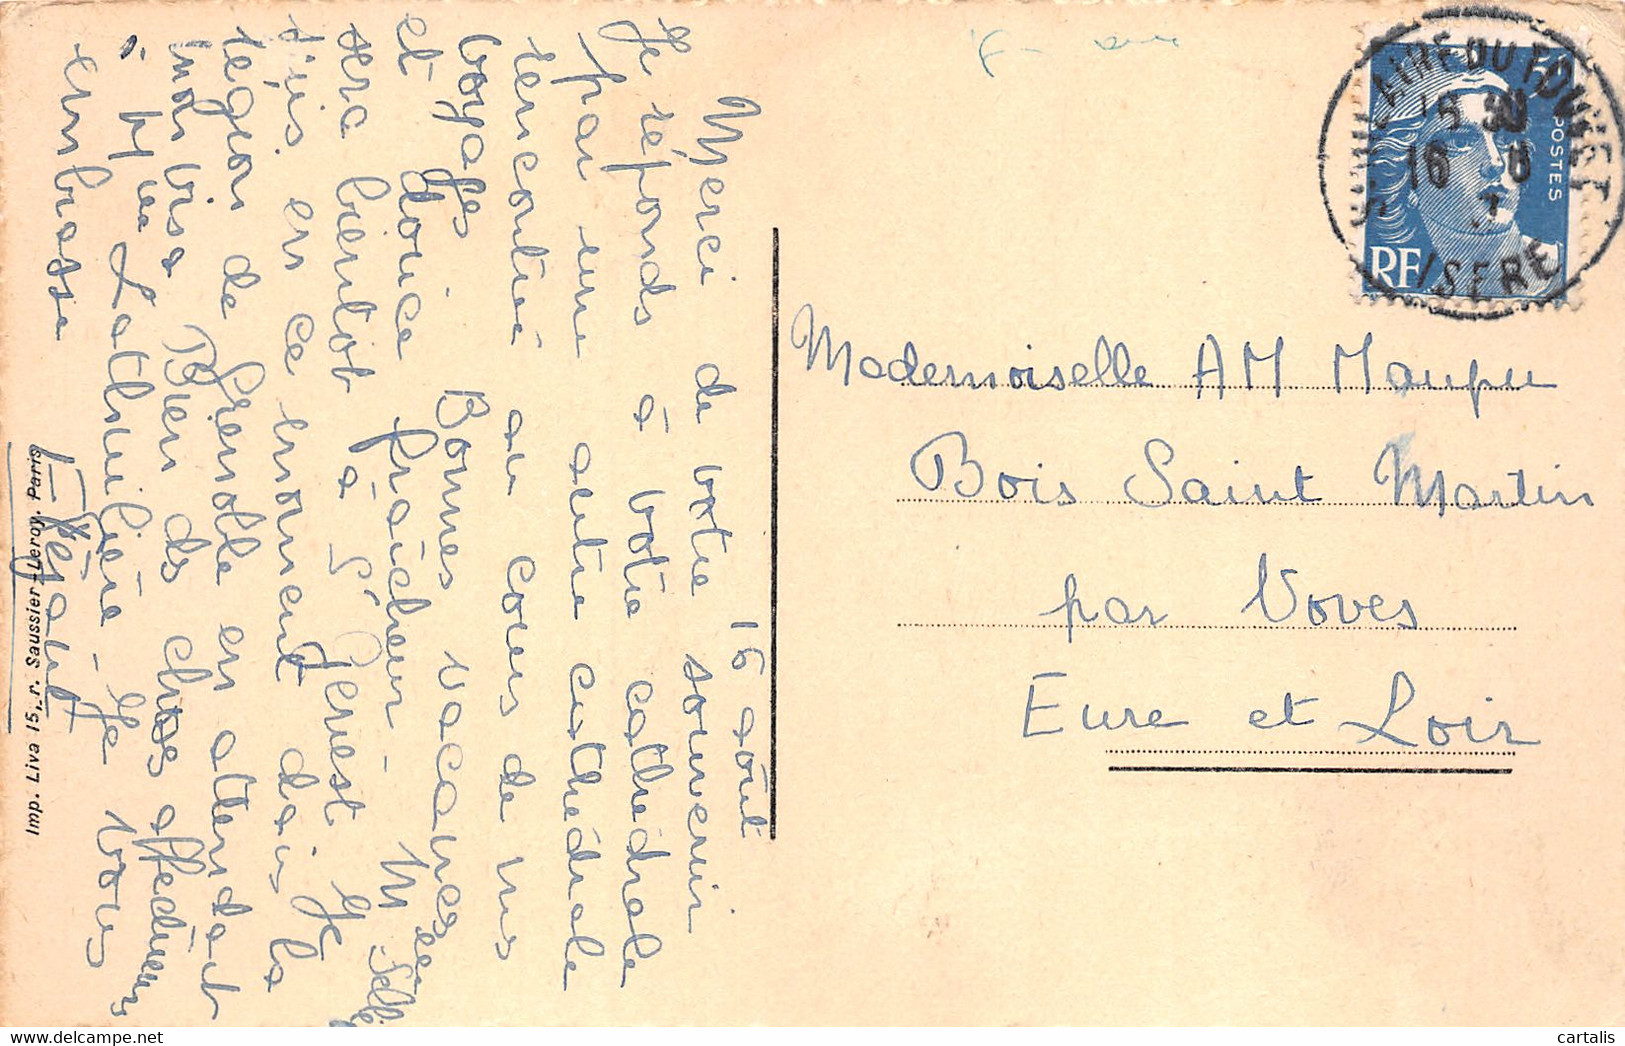 16 août
Merci de votre souvenir
Je réponds à votre cathédrale
par une autre cathédrale
rencontrée au cours de mes
voyages. Bonnes vacances
et douce fraîcheur - Melle
sera bientôt à St Genest Je
suis en ce moment dans la
région de Grenoble en attendant
mon visa Bien des choses affectueuses
à Je vous
embrasse
Imp. Liva 15, r. Saussier-Leroy. Paris
Mademoiselle AM Maupu
Bois Saint Martin
par Voves
Eure et Loir
POSTES
RF
ISERE
16 8
cartalis
delcampe.net